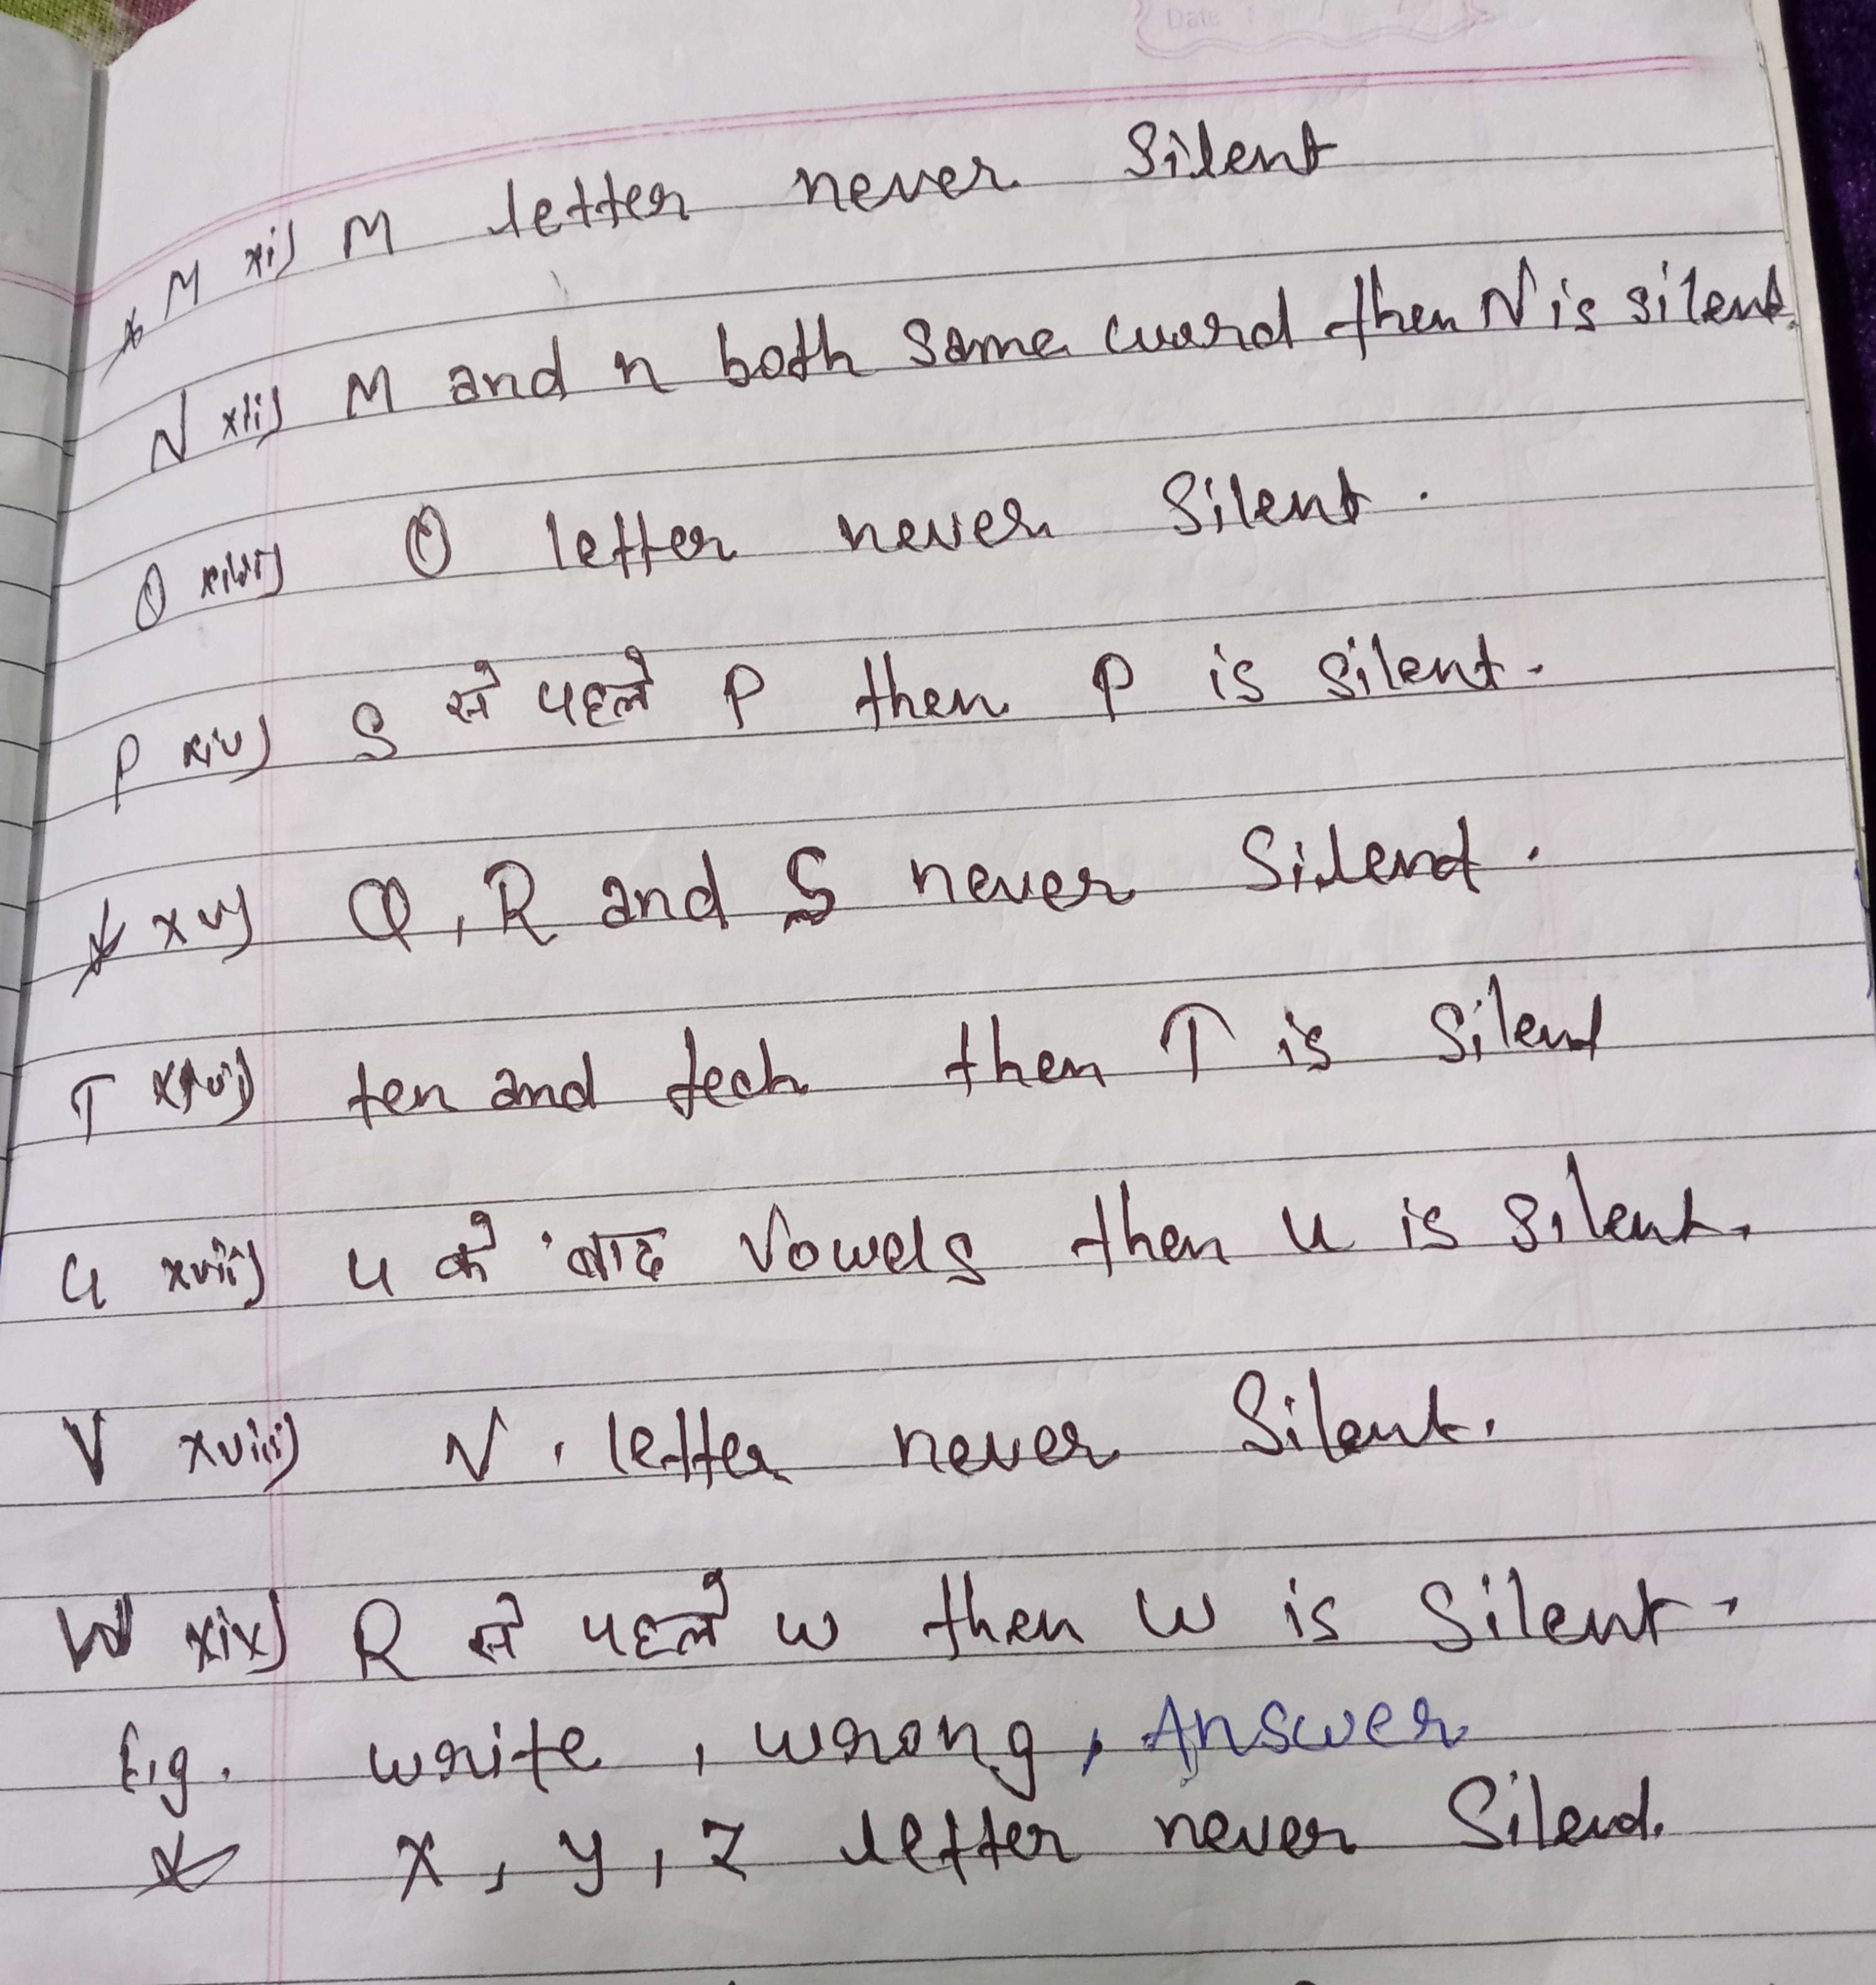 Date :
* M xi) M letter never Silent
N xii) M and n both Same word then N is silent.
O xiii) O letter never Silent.
P xiv) S से पहले P then P is silent.
* xv) Q, R and S never Silend.
T xvi) ten and tech then T is Silent
U xvii) U के बाद Vowels then U is Silent.
V xviii) V. letter never Silent.
W xix) R से पहले w then w is Silent.
Eg. write, wrong, Answer
* X, y, Z letter never Silend.